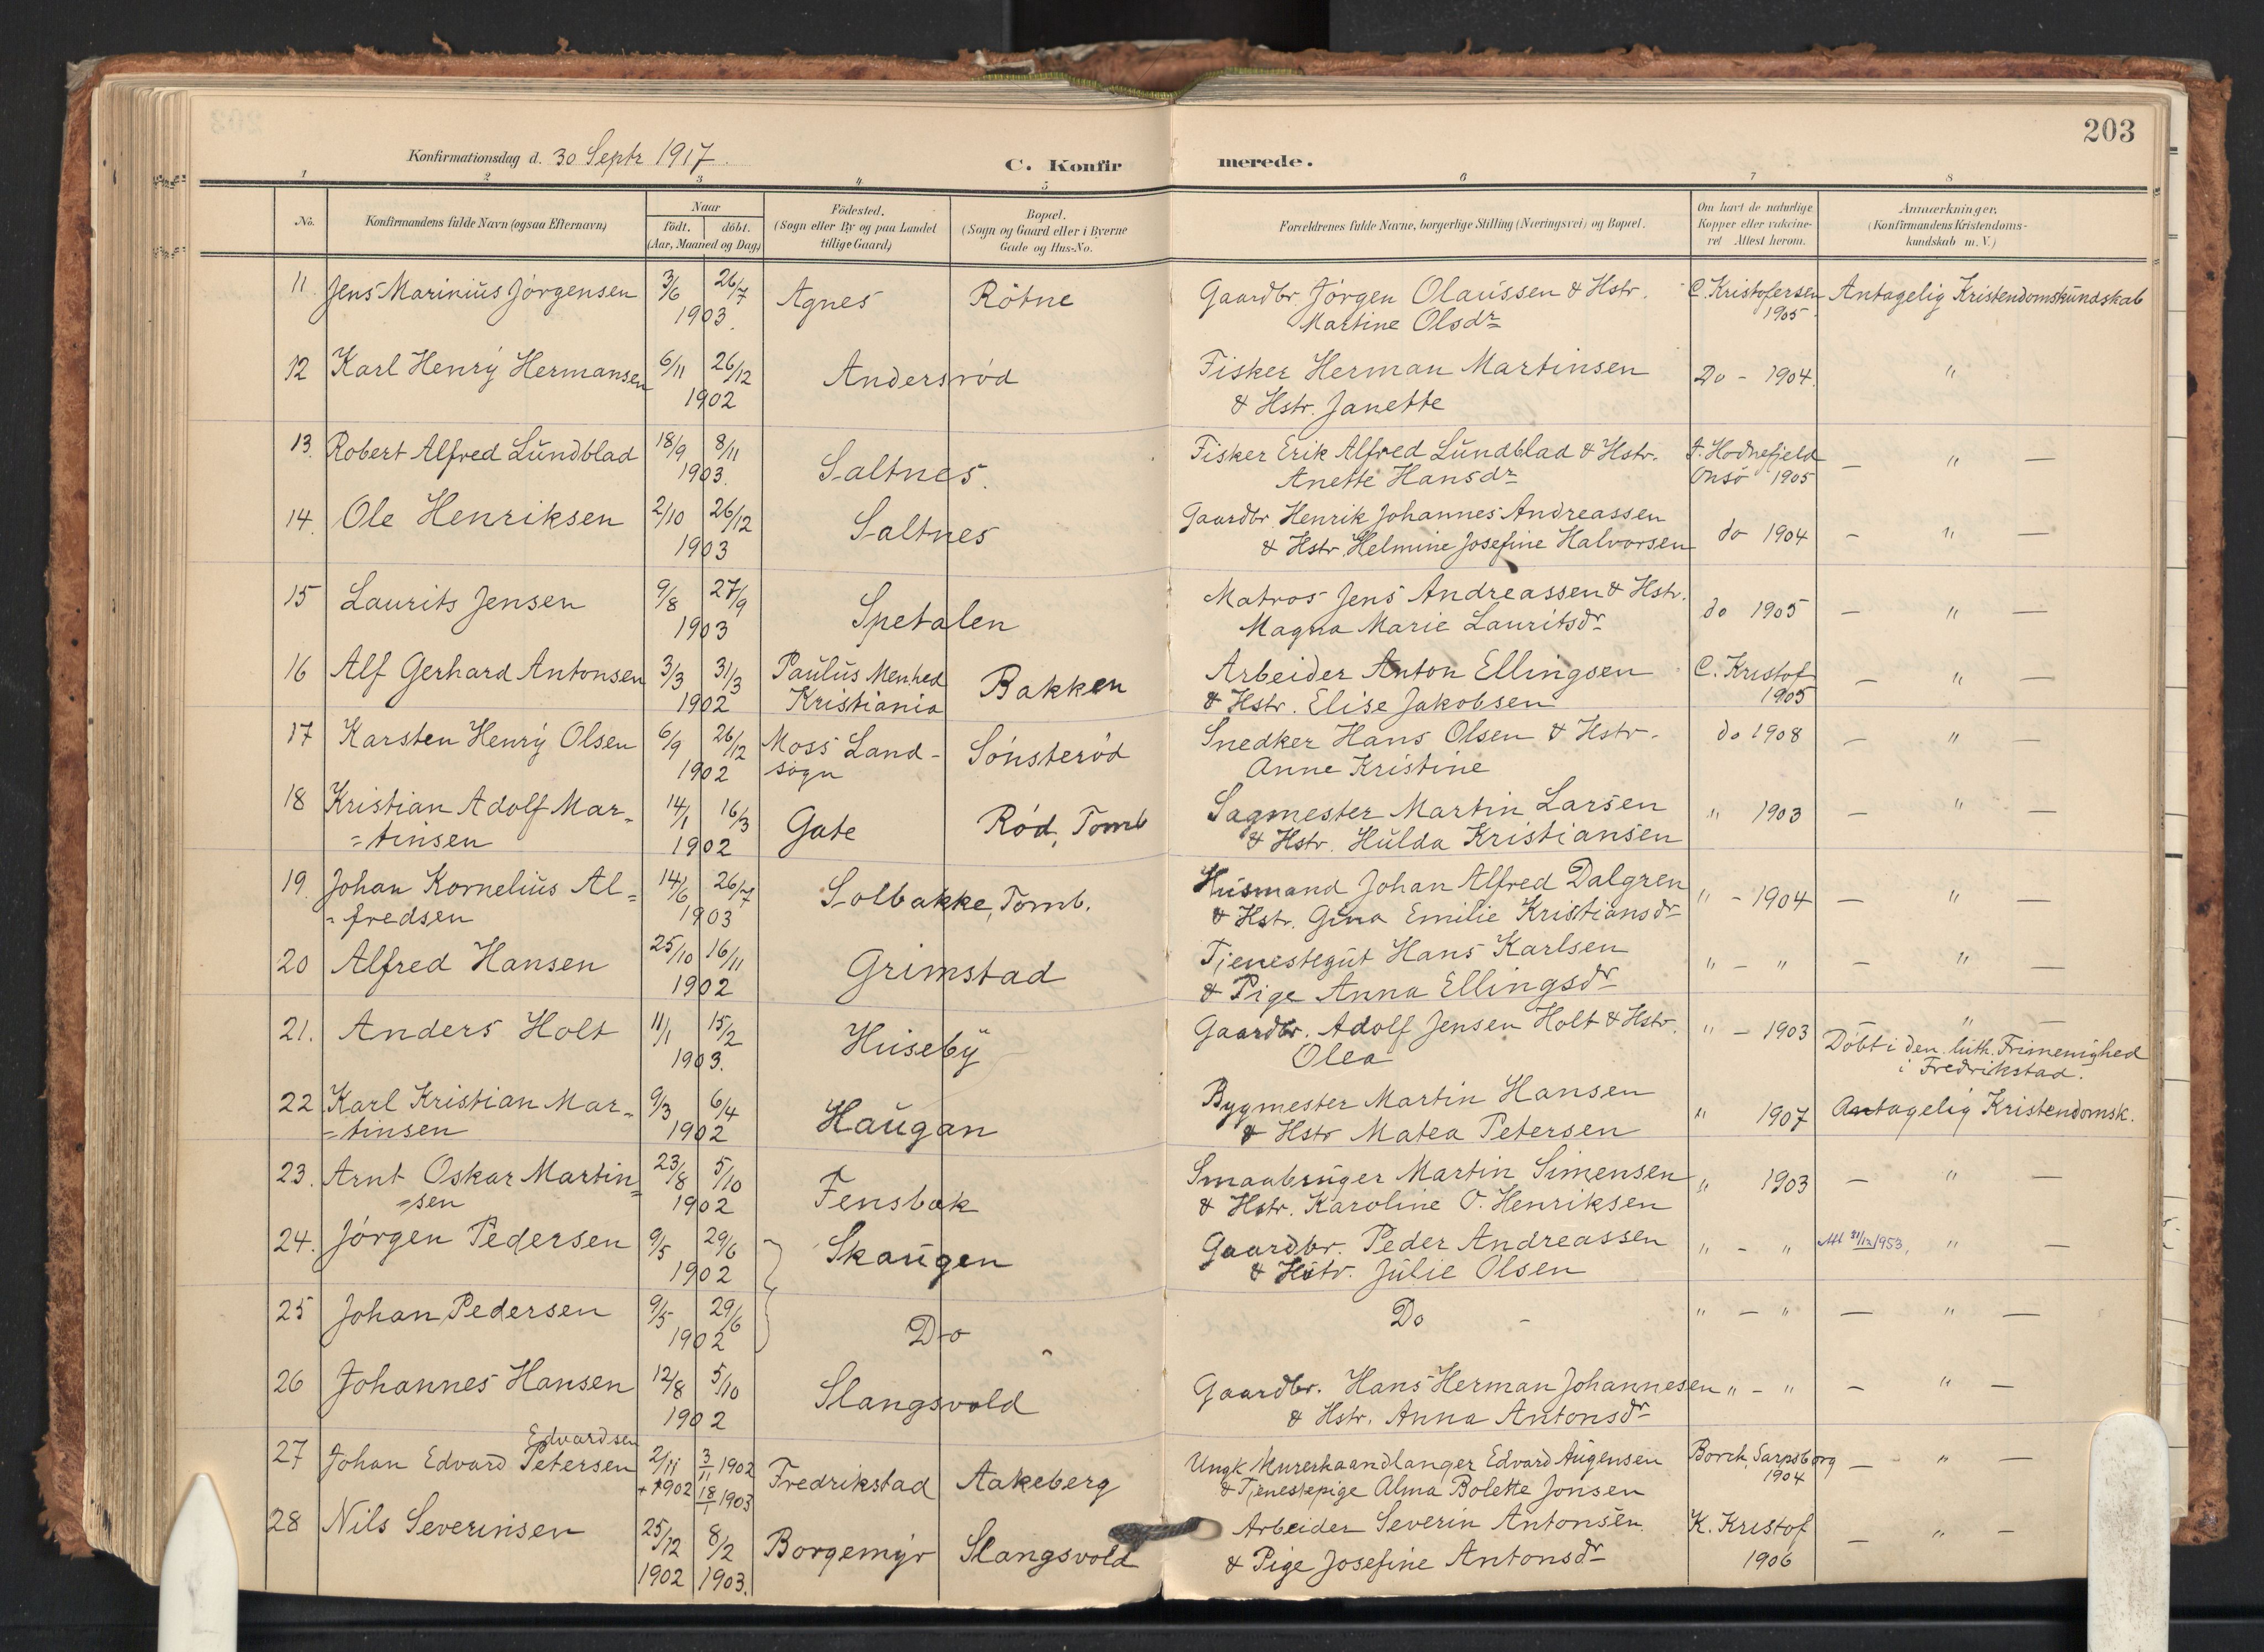 203
Konfirmationsdag d. 30 Septr 1917.
C. Konfirmerede.
1 2 3 4 5 6 7 8
No. Konfirmandens fulde Navn (ogsaa Efternavn) Naar födt. döbt. (Aar, Maaned og Dag) Födested. (Sogn eller By og paa Landet tillige Gaard) Bopæl. (Sogn og Gaard eller i Byerne Gade og Hus-No. Forældrenes fulde Navne, borgerlige Stilling (Næringsvei) og Bopæl. Om havt de naturlige Kopper eller vakcineret Attest herom. Anmærkninger, (Konfirmandens Kristendomskundskab m. V.)
11. Jens Marinius Jörgensen 3/6 26/7 Agnes Rötne Gaardbr. Jörgen Olaussen & Hstr. C. Kristofersen Antagelig Kristendomskundskab
1903. Martine Olsdr 1905.
12 Karl Henry Hermansen 6/11 26/12 Andersröd Fisker Herman Martinsen Do - 1904. "
1902 & Hstr. Janette
13. Robert Alfred Lundblad 18/9 8/11 Saltnes. Fisker Erik Alfred Lundblad & Hstr. F. Hodnefjeld — " —
1903. Anette Hansdr Onsö 1905
14. Ole Henriksen 2/10 26/12 Saltnes Gaardbr. Henrik Johannes Andreassen do 1904 — " —
1903 & Hstr. Helmine Josefine Halvorsen
15 Laurits Jensen 9/8 27/9 Spetalen Matros Jens Andreassen & Hstr. do 1905 — " —
1903 Magna Marie Lauritsdr
16 Alf Gerhard Antonsen 3/3 31/3 Paulus Menhed Bakken Arbeider Anton Ellingsen C. Kristof — " —
1902 Kristiania & Hstr. Elise Jakobsen 1905
17 Karsten Henry Olsen 6/9 26/12 Moss Land- Sönsteröd Snedker Hans Olsen & Hstr. do 1908 — " —
1902 sogn Anne Kristine
18 Kristian Adolf Mar= 14/1 16/3 Gate Röd, Tomb Sagmester Martin Larsen " 1903 — " —
=tinsen 1902 & Hstr. Hulda Kristiansen
19. Johan Kornelius Al= 14/6 26/7 Solbakke, Tomb. Husmand Johan Alfred Dalgren " - 1904 — " —
=fredsen 1903 & Hstr. Gina Emilie Kristiansdr
20 Alfred Hansen 25/10 16/11 Grimstad Tjenestegut Hans Karlsen " - " — " —
1902 & Pige Anna Ellingsdr
21. Anders Holt 11/1 15/2 Huseby Gaardbr. Adolf Jensen Holt & Hstr. " - 1903 — " —
1903. Olea Döbt i den luth. Frimenighed
i Fredrikstad.
22. Karl Kristian Mar= 9/3 6/4 Haugan Bygmester Martin Hansen " 1907 Antagelig Kristendomsk.
=tinsen 1902 & Hstr Matea Petersen
23. Arnt Oskar Martin= 23/8 5/10 Fensbak Smaabruger Martin Simensen " 1903 — " —
=sen 1902 & Hstr. Karoline O. Henriksen
24. Jörgen Pedersen 9/5 29/6 Skaugen Gaardbr. Peder Andreassen " - " Att 31/12 1953, " —
1902 & Hstr. Julie Olsen
25 Johan Pedersen 9/5 29/6 Do Do - " - " — " —
1902
26 Johannes Hansen 12/8 5/10 Slangsvold Gaardbr. Hans Herman Johannesen " - " — " —
1902 & Hstr. Anna Antonsdr
Edvardsen
27 Johan Edvard Petersen 2/11 3/11 1902 Fredrikstad Aakeberg Ungk Murerhaandlanger Edvard Augensen Borch, Sarpsborg — " —
1902 18/1 1903 & Tjenestepige Alma Bolette Jonsen 1904
28 Nils Severinsen 25/12 8/2 Borgemyr Slangsvold Arbeider Severin Antonsen K. Kristof — " —
1902 1903. & Pige Josefine Antonsdr 1906